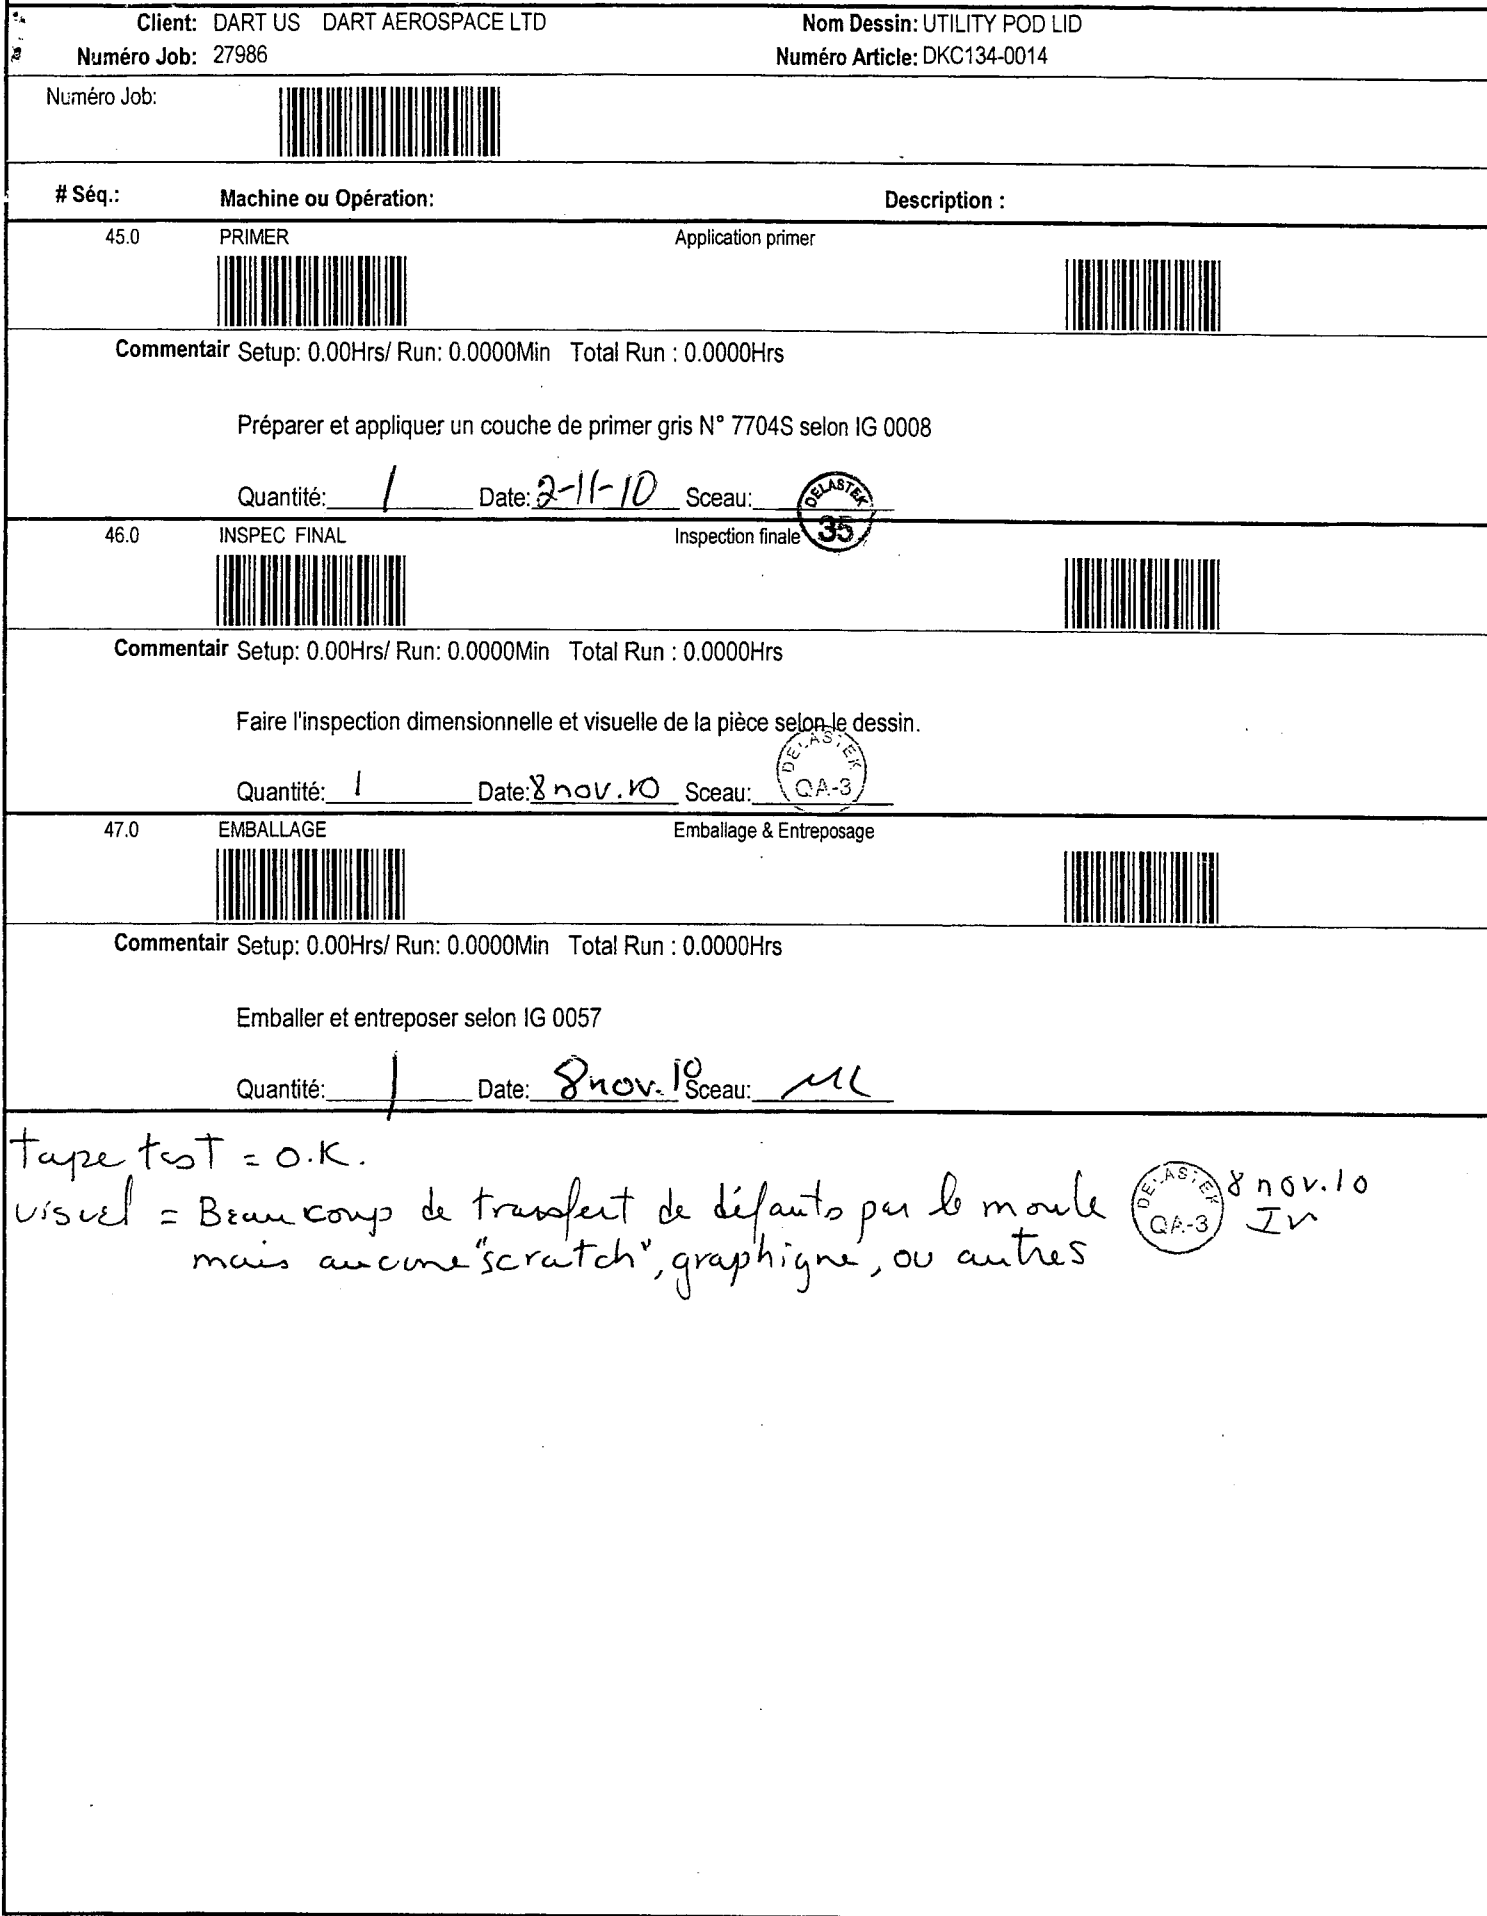 Client: DART US DART AEROSPACE LTD Nom Dessin: UTILITY POD LID
Numéro Job: 27986 Numéro Article: DKC134-0014
Numéro Job:
# Séq.: Machine ou Opération: Description :
45.0 PRIMER Application primer
Commentair Setup: 0.00Hrs/ Run: 0.0000Min Total Run : 0.0000Hrs
Préparer et appliquer un couche de primer gris N° 7704S selon IG 0008
Quantité: 1 Date: 2-11-10 Sceau: DELASTEK 35
46.0 INSPEC FINAL Inspection finale
Commentair Setup: 0.00Hrs/ Run: 0.0000Min Total Run : 0.0000Hrs
Faire l'inspection dimensionnelle et visuelle de la pièce selon le dessin.
Quantité: 1 Date: 8 nov. 10 Sceau: DELASTEK QA-3
47.0 EMBALLAGE Emballage & Entreposage
Commentair Setup: 0.00Hrs/ Run: 0.0000Min Total Run : 0.0000Hrs
Emballer et entreposer selon IG 0057
Quantité: 1 Date: 8 nov. 10 Sceau:
tape test = O.K.
visuel = Beaucoup de transfert de défauts par le moule DELASTEK QA-3 8 nov.10
mais aucune "scratch", graphigne, ou autres